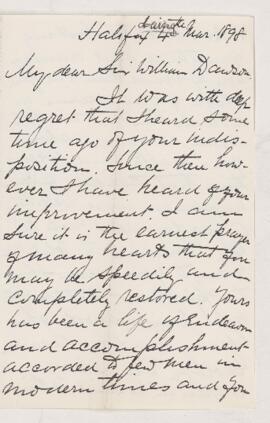 Halifax 4th Mar. 1898
My dear Sir William Dawson
It was with deep
regret that I heard some
time ago of your indis-
position. Since then how-
ever I have heard of your
improvement. I am
sure it is the earnest prayer
of many hearts that you
may be speedily and
completely restored. Yours
has been a life of Endeavor
and accomplishment
accorded to few men in
modern times and you